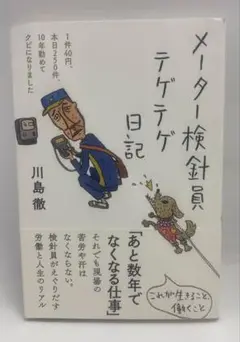 メーター検針員
テゲテゲ
日記
1件40円、
本日250件、
10年勤めて
クビになりました
川島徹
「あと数年で
なくなる仕事」
それでも現場の
苦労や汗は
なくならない。
検針員がえぐりだす
労働と人生のリアル
これが生きること
働くこと